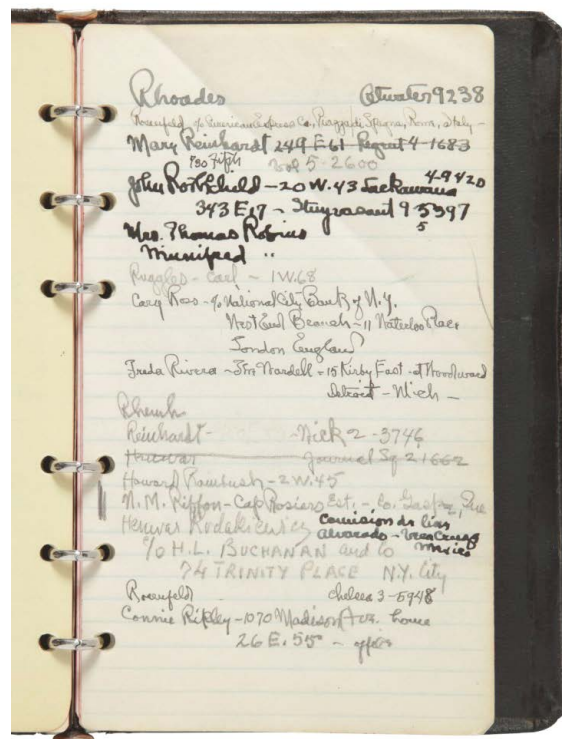 Rhoades Atwater 9238
Rosenfeld c/o American Express Co, Piazza di Spagna, Rome, Italy -
Mary Reinhardt 249 E 61 - Regent 4-1683
730 Fifth Vol 5-2600
John Rothchild - 20 W. 43 Lackawana 4-9420
343 E 17 - Stuyvesant 9 5397
5
Mrs. Thomas Robins
Winnifred "
Ruggles - Carl - 1 W. 68
Cary Ross - c/o National City Bank of N.Y.
West End Branch - 11 Waterloo Place
London England
Freda Rivera - The Wardell - 15 Kirby East - at Woodward
Detroit - Mich -
Reinhardt - Nick 2-3746
Journal Sq 2 1662
Howard Rambush - 2 W. 45
N. M. Riffon - Cap Rosiers Est. - Co. Gaspe, Que
Henwar Rodakiewicz Comision de
Alvarado - Vera Cruz
Mexico
c/o H.L. BUCHANAN and Co
74 TRINITY PLACE N.Y. City
Rosenfeld Chelsea 3-5948
Connie Ripley - 1070 Madison Ave. home
26 E. 55 - office